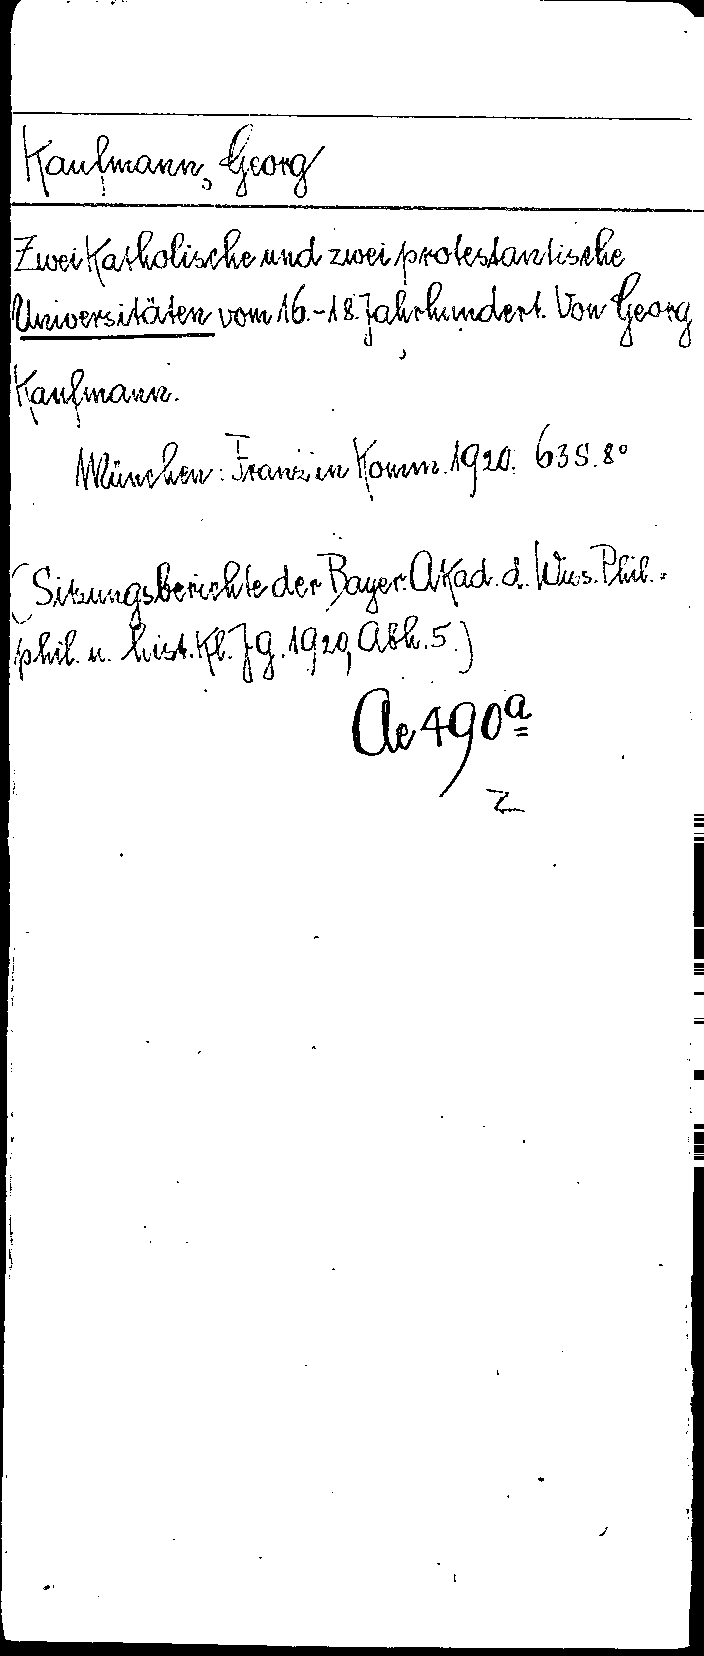 Kaufmann, Georg
Zwei Katholische und zwei protestantische
Universitäten vom 16.-18. Jahrhundert. Von Georg
Kaufmann.
München: Franz in Komm. 1920. 63 S. 8°
(Sitzungsberichte der Bayer. Akad. d. Wiss. Phil.-
phil. u. hist. Kl. Jg. 1920, Abh. 5.)
Ae 490a
Z